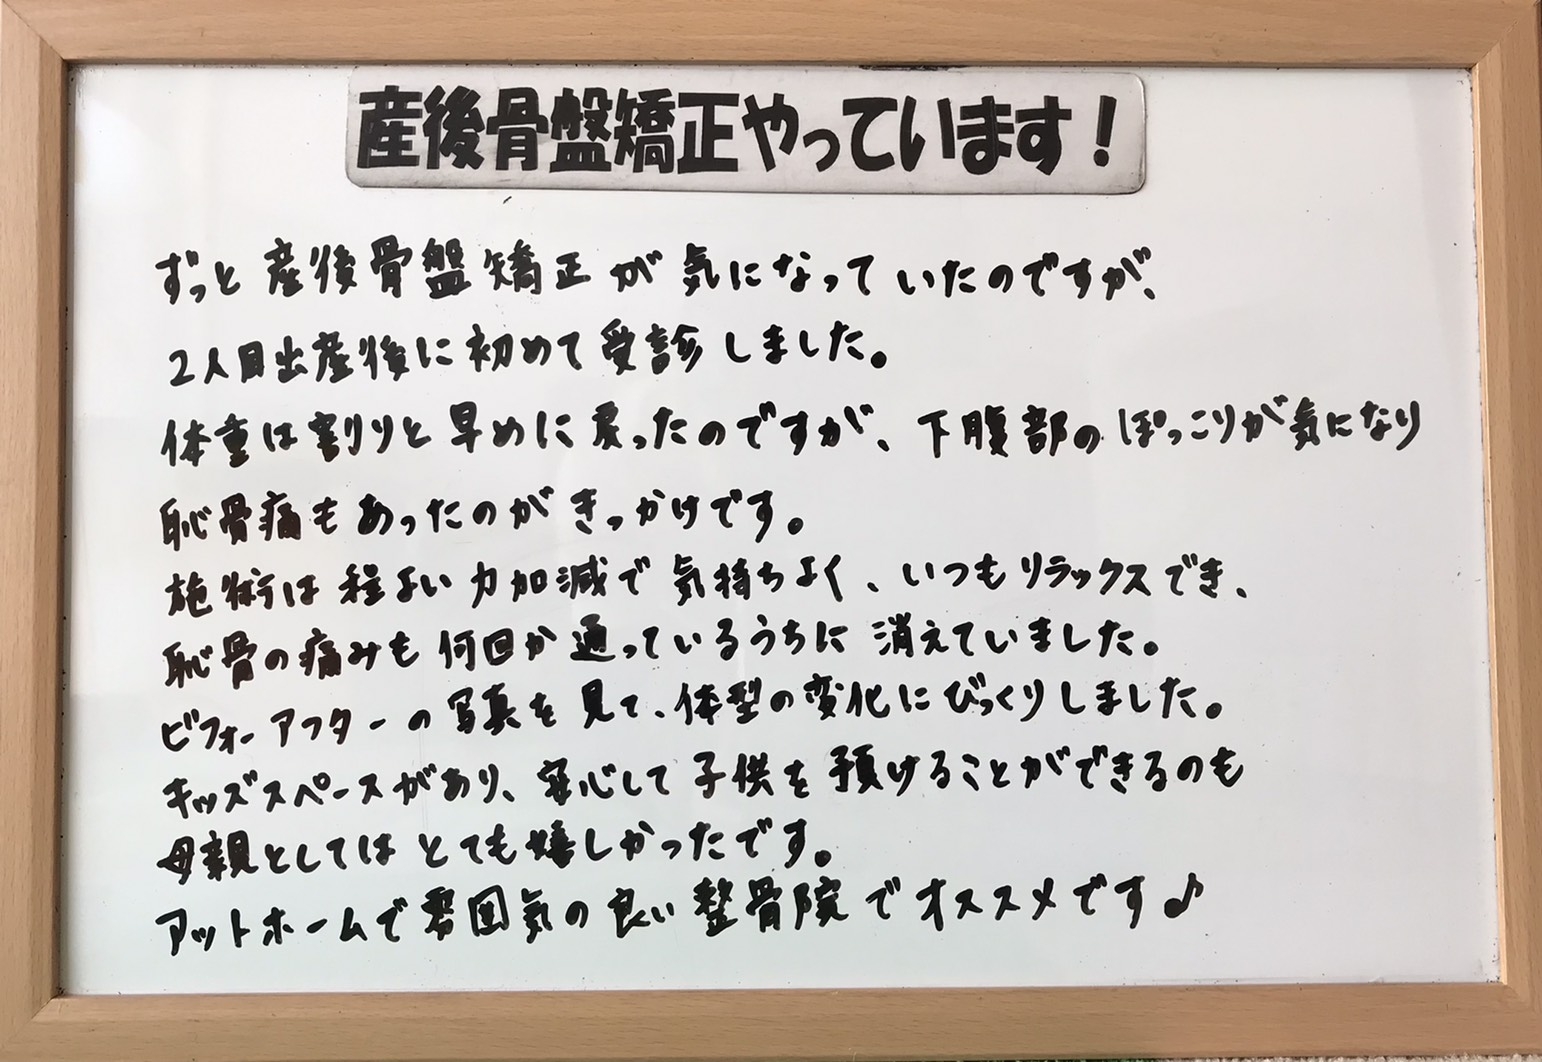 産後骨盤矯正やっています!
ずっと産後骨盤矯正が気になっていたのですが、
2人目出産後に初めて受診しました。
体重は割りと早めに戻ったのですが、下腹部のぽっこりが気になり
恥骨痛もあったのがきっかけです。
施術は程よい力加減で気持ちよく、いつもリラックスでき、
恥骨の痛みも何回か通っているうちに消えていました。
ビフォーアフターの写真を見て、体型の変化にびっくりしました。
キッズスペースがあり、安心して子供を預けることができるのも
母親としてはとても嬉しかったです。
アットホームで雰囲気の良い整骨院でオススメです♪